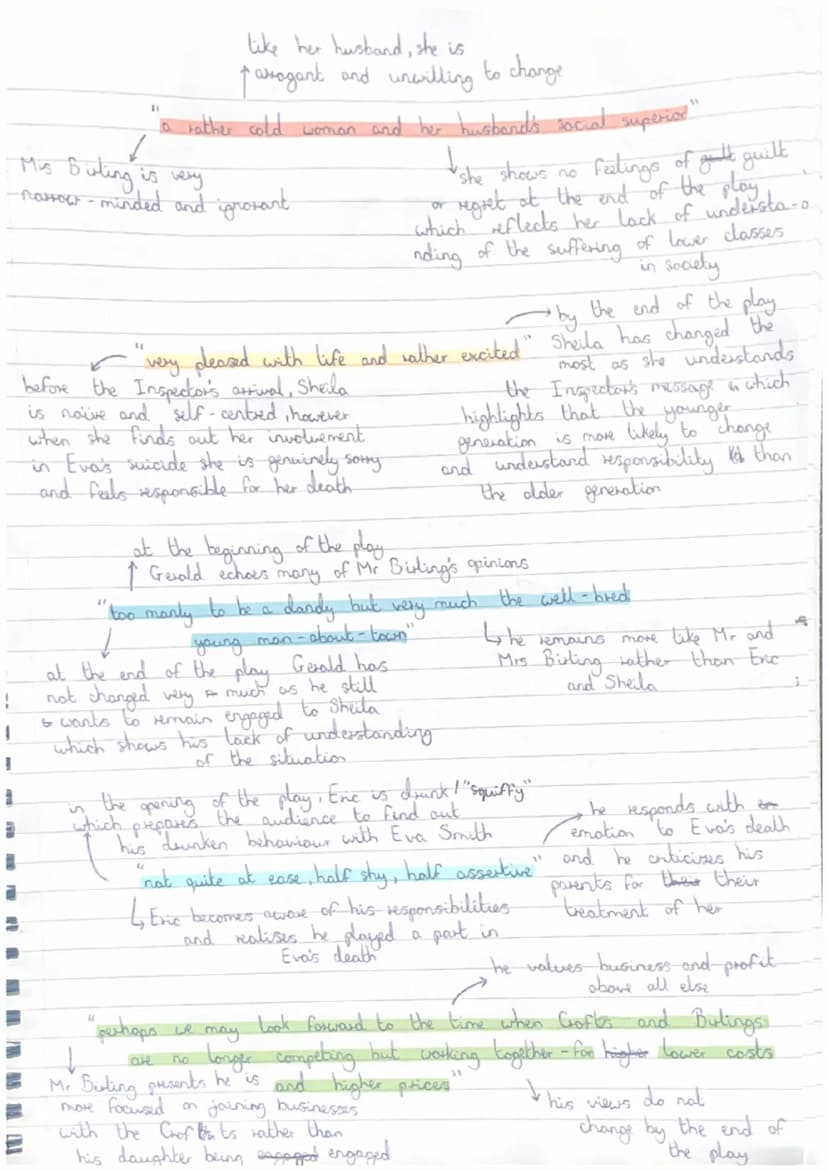 like her husband, she is
arrogant and unwilling to change
"a rather cold woman and her husband's social superior"
Mrs Birling is very
narrow-minded and ignorant
she shows no feelings of guilt
or regret at the end of the play
which reflects her lack of understa-
nding of the suffering of lower classes
in society
"very pleased with life and rather excited"
before the Inspector's arrival, Sheila
is naive and self-centred, however
when she finds out her involvement
in Eva's suicide she is genuinely sorry
and feels responsible for her death
by the end of the play
Sheila has changed the
most as she understands
the Inspector's message which
highlights that the younger
generation is more likely to change
and understand responsibility than
the older generation
at the beginning of the play
Gerald echoes many of Mr Birling's opinions
"too manly to be a dandy but very much the well-bred
young man-about-town"
at the end of the play Gerald has
not changed very much as he still
wants to remain engaged to Sheila
which shows his lack of understanding
of the situation
he remains more like Mr and
Mrs Birling rather than Eric
and Sheila
in the opening of the play, Eric is drunk/"squiffy"
which prepares the audience to find out
his drunken behaviour with Eva Smith
"not quite at ease, half shy, half assertive"
Eric becomes aware of his responsibilities
and realises he played a part in
Eva's death
he responds with
emotion to Eva's death
and he criticizes his
parents for their
treatment of her
he values business and profit
above all else
"perhaps we may look forward to the time when Crofts and Birlings
are no longer competing but working together - for higher lower costs
and higher prices"
Mr Birling presents he is
more focused on joining businesses
with the Crofts rather than
his daughter being engaged engaged
his views do not
change by the end of
the play